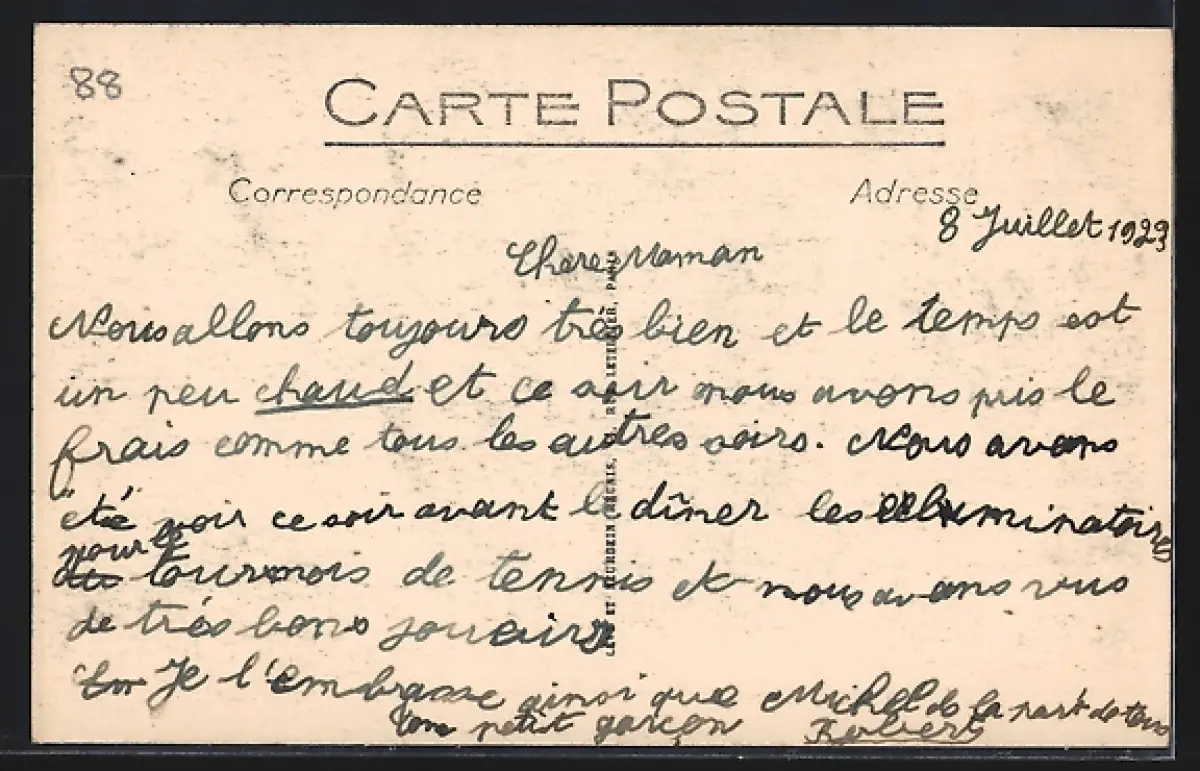 88
CARTE POSTALE
Correspondance
Adresse
8 Juillet 1923
Chere Maman
Nous allons toujours très bien et le temps est
un peu chaud et ce soir nous avons pris le
frais comme tous les autres soirs. Nous avons
été voir ce soir avant le dîner les éliminatoires
pour le
tournois de tennis et nous avons vus
de très bons joueurs
Je t'embrasse ainsi que Michel de la part de tous
Ton petit garçon Robert